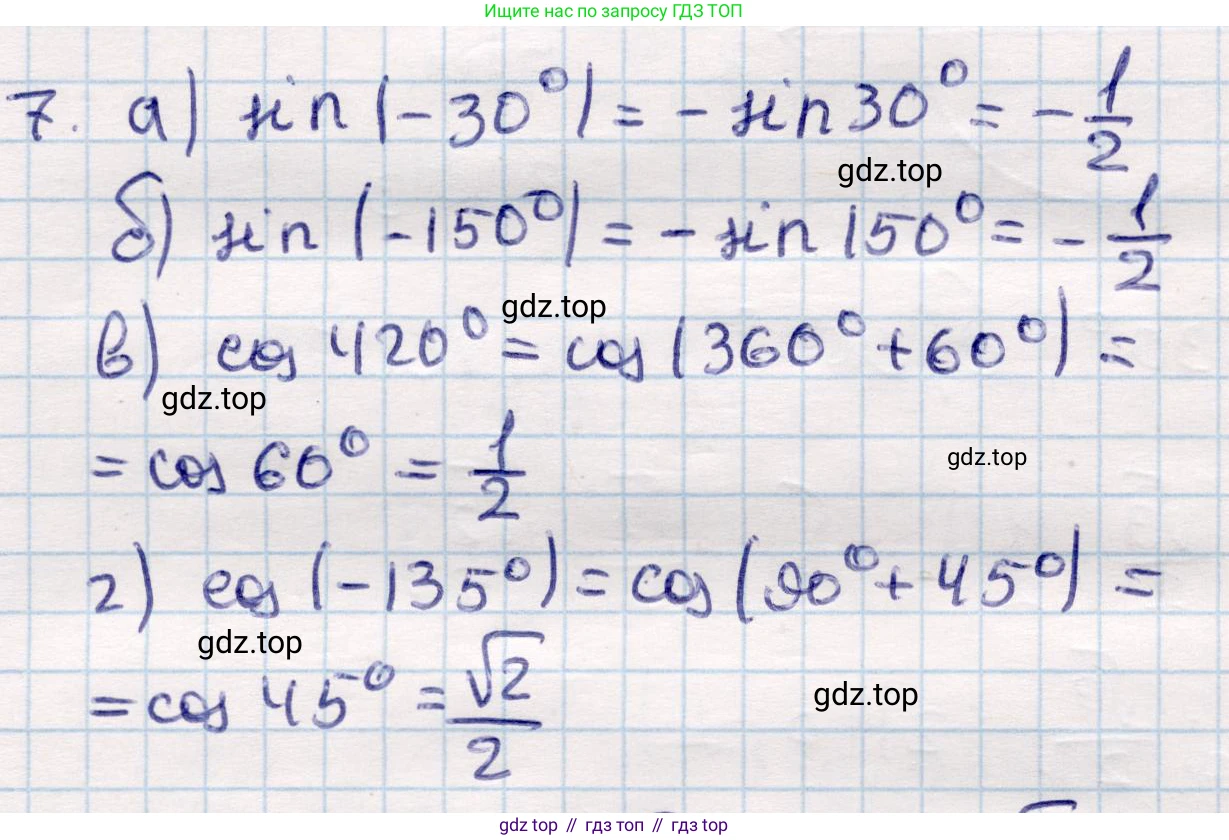 Ищите нас по запросу ГДЗ ТОП
7. а) sin (-30°) = - sin 30° = - 1/2
gdz.top
б) sin (-150°) = - sin 150° = - 1/2
gdz.top
в) cos 420° = cos (360° + 60°) =
gdz.top
= cos 60° = 1/2
gdz.top
г) cos (-135°) = cos (90° + 45°) =
gdz.top
= cos 45° = √2/2
gdz.top
gdz top // гдз топ // gdz top